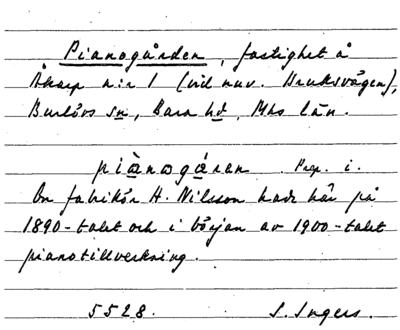 Pianogården, fastighet å
Åkarp n:r 1 (vid nuv. Bruksvägen),
Burlövs sn, Bara hd, Mhs län.
piànogáren. Prep. i.
En fabrikör H. Nilsson hade här på
1890-talet och i början av 1900-talet
pianotillverkning.
5528. S. Ingers.